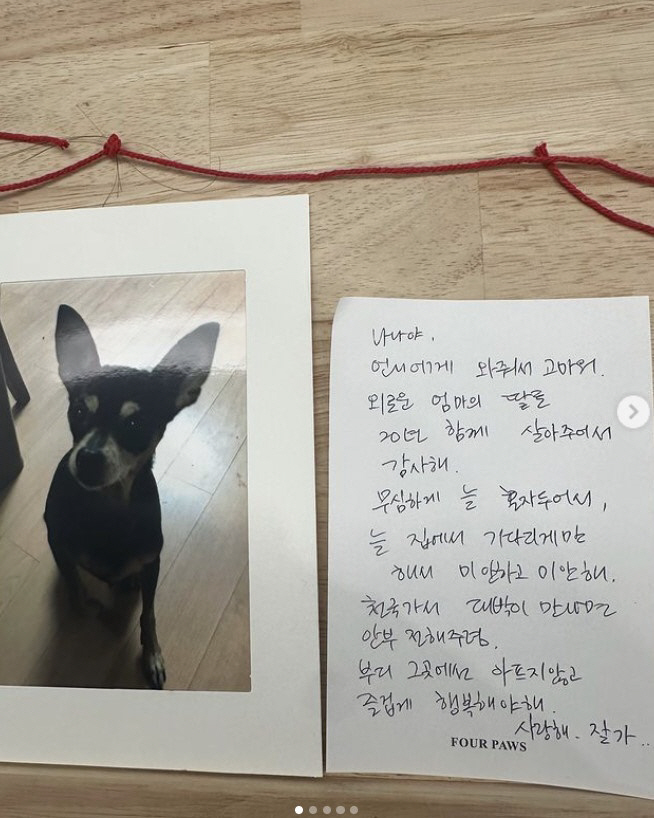 나나야.
언니에게 와줘서 고마워.
외로운 엄마의 딸로
20년 함께 살아주어서
감사해.
무심하게 늘 혼자두어서,
늘 집에서 기다리게만
해서 미안하고 미안해.
천국가서 대박이 만나면
안부 전해주렴.
부디 그곳에선 아프지않고
즐겁게 행복해야해.
사랑해. 잘가..
FOUR PAWS